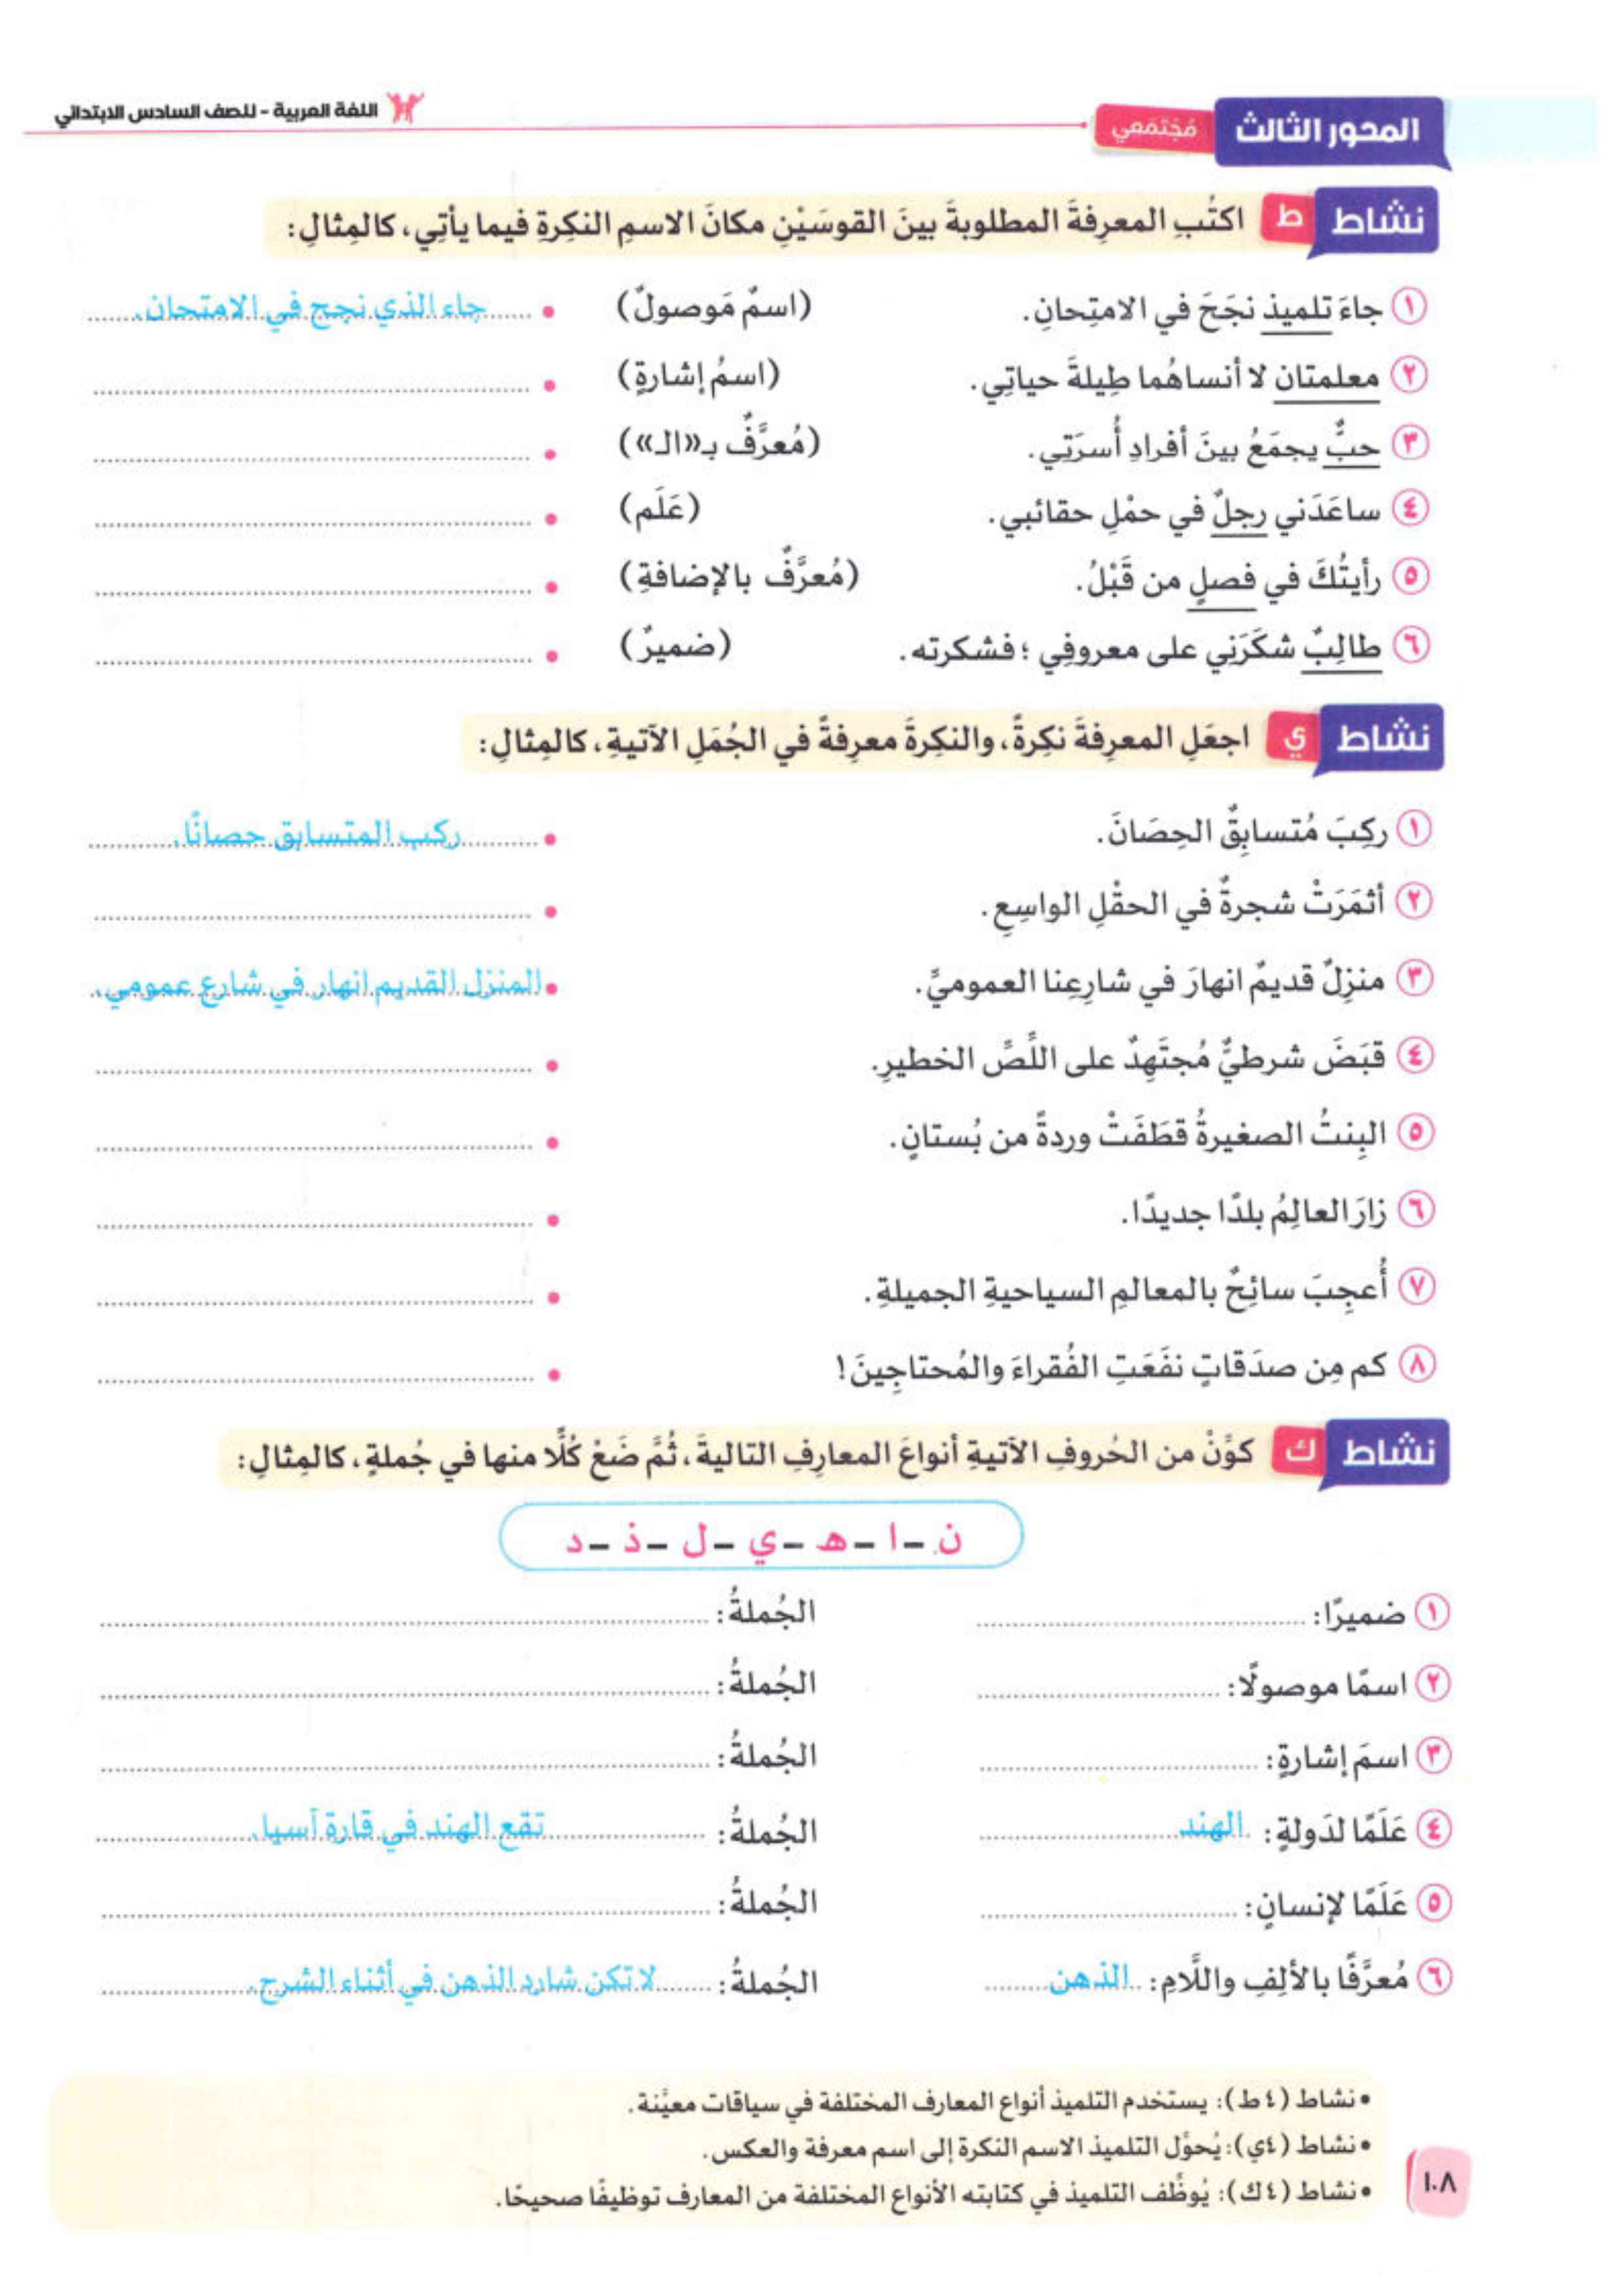 المحور الثالث مُجْتمَعي اللغة العربية - للصف السادس الابتدائي
نشاط ط اكتُبِ المعرِفةَ المطلوبةَ بينَ القوسَيْنِ مكانَ الاسمِ النكِرةِ فيما يأتِي، كالمِثالِ:
١ جاءَ تلميذ نجَحَ في الامتِحانِ. (اسمٌ مَوصولٌ) • جاء الذي نجح في الامتحان.
٢ معلمتان لا أنساهُما طِيلةَ حياتِي. (اسمُ إشارةٍ) •
٣ حبٌّ يجمَعُ بينَ أفرادِ أُسرَتِي. (مُعرَّفٌ بـ«الـ») •
٤ ساعَدَني رجلٌ في حمْلِ حقائبي. (عَلَم) •
٥ رأيتُكَ في فصلٍ من قَبْلُ. (مُعرَّفٌ بالإضافةِ) •
٦ طالِبٌ شكَرَنِي على معروفِي ؛ فشكرته. (ضميرٌ) •
نشاط ي اجعَلِ المعرِفةَ نكِرةً، والنكِرةَ معرِفةً في الجُمَلِ الآتيةِ، كالمِثالِ:
١ ركِبَ مُتسابِقٌ الحِصَانَ. • ركب المتسابق حصانًا.
٢ أثمَرَتْ شجرةٌ في الحقْلِ الواسِعِ. •
٣ منزِلٌ قديمٌ انهارَ في شارِعِنا العموميِّ. • المنزل القديم انهار في شارع عمومي.
٤ قبَضَ شرطيٌّ مُجتَهِدٌ على اللِّصِّ الخطيرِ. •
٥ البِنتُ الصغيرةُ قطَفَتْ وردةً من بُستانٍ. •
٦ زارَ العالِمُ بلدًا جديدًا. •
٧ أُعجِبَ سائِحٌ بالمعالمِ السياحيةِ الجميلةِ. •
٨ كم مِن صدَقاتٍ نفَعَتِ الفُقراءَ والمُحتاجِينَ! •
نشاط ك كوِّنْ من الحُروفِ الآتيةِ أنواعَ المعارِفِ التاليةَ، ثُمَّ ضَعْ كُلًّا منها في جُملةٍ، كالمِثالِ:
ن – ا – هـ – ي – ل – ذ – د
١ ضميرًا: الجُملةُ:
٢ اسمًا موصولًا: الجُملةُ:
٣ اسمَ إشارةٍ: الجُملةُ:
٤ عَلَمًا لدَولةٍ: الهند الجُملةُ: تقع الهند في قارة آسيا.
٥ عَلَمًا لإنسانٍ: الجُملةُ:
٦ مُعرَّفًا بالألِفِ واللَّامِ: الذهن الجُملةُ: لا تكن شارد الذهن في أثناء الشرح.
• نشاط (٤ ط): يستخدم التلميذ أنواع المعارف المختلفة في سياقات معيَّنة.
• نشاط (٤ي): يُحوِّل التلميذ الاسم النكرة إلى اسم معرفة والعكس.
• نشاط (٤ ك): يُوظِّف التلميذ في كتابته الأنواع المختلفة من المعارف توظيفًا صحيحًا.
١٠٨